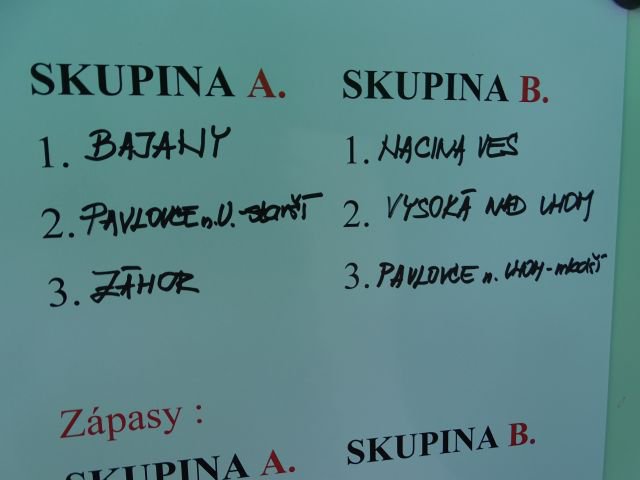 SKUPINA A.
1. BAJANY
2. PAVLOVCE n.U. - starší
3. ZÁHOR
SKUPINA B.
1. NACINA VES
2. VYSOKÁ NAD UHOM
3. PAVLOVCE n. UHOM - mladší
Zápasy :
SKUPINA A.
SKUPINA B.